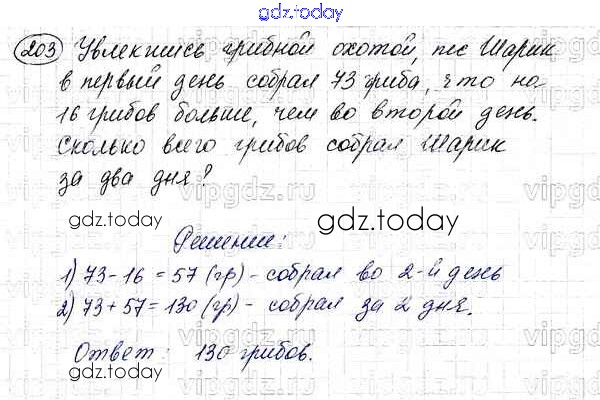 gdz.today
203 Увлекшись грибной охотой, пес Шарик
в первый день собрал 73 гриба, что на
16 грибов больше, чем во второй день.
Сколько всего грибов собрал Шарик
за два дня?
gdz.today
gdz.today
Решение:
1) 73-16=57 (гр) - собрал во 2-й день
2) 73+57=130 (гр) - собрал за 2 дня.
Ответ: 130 грибов.